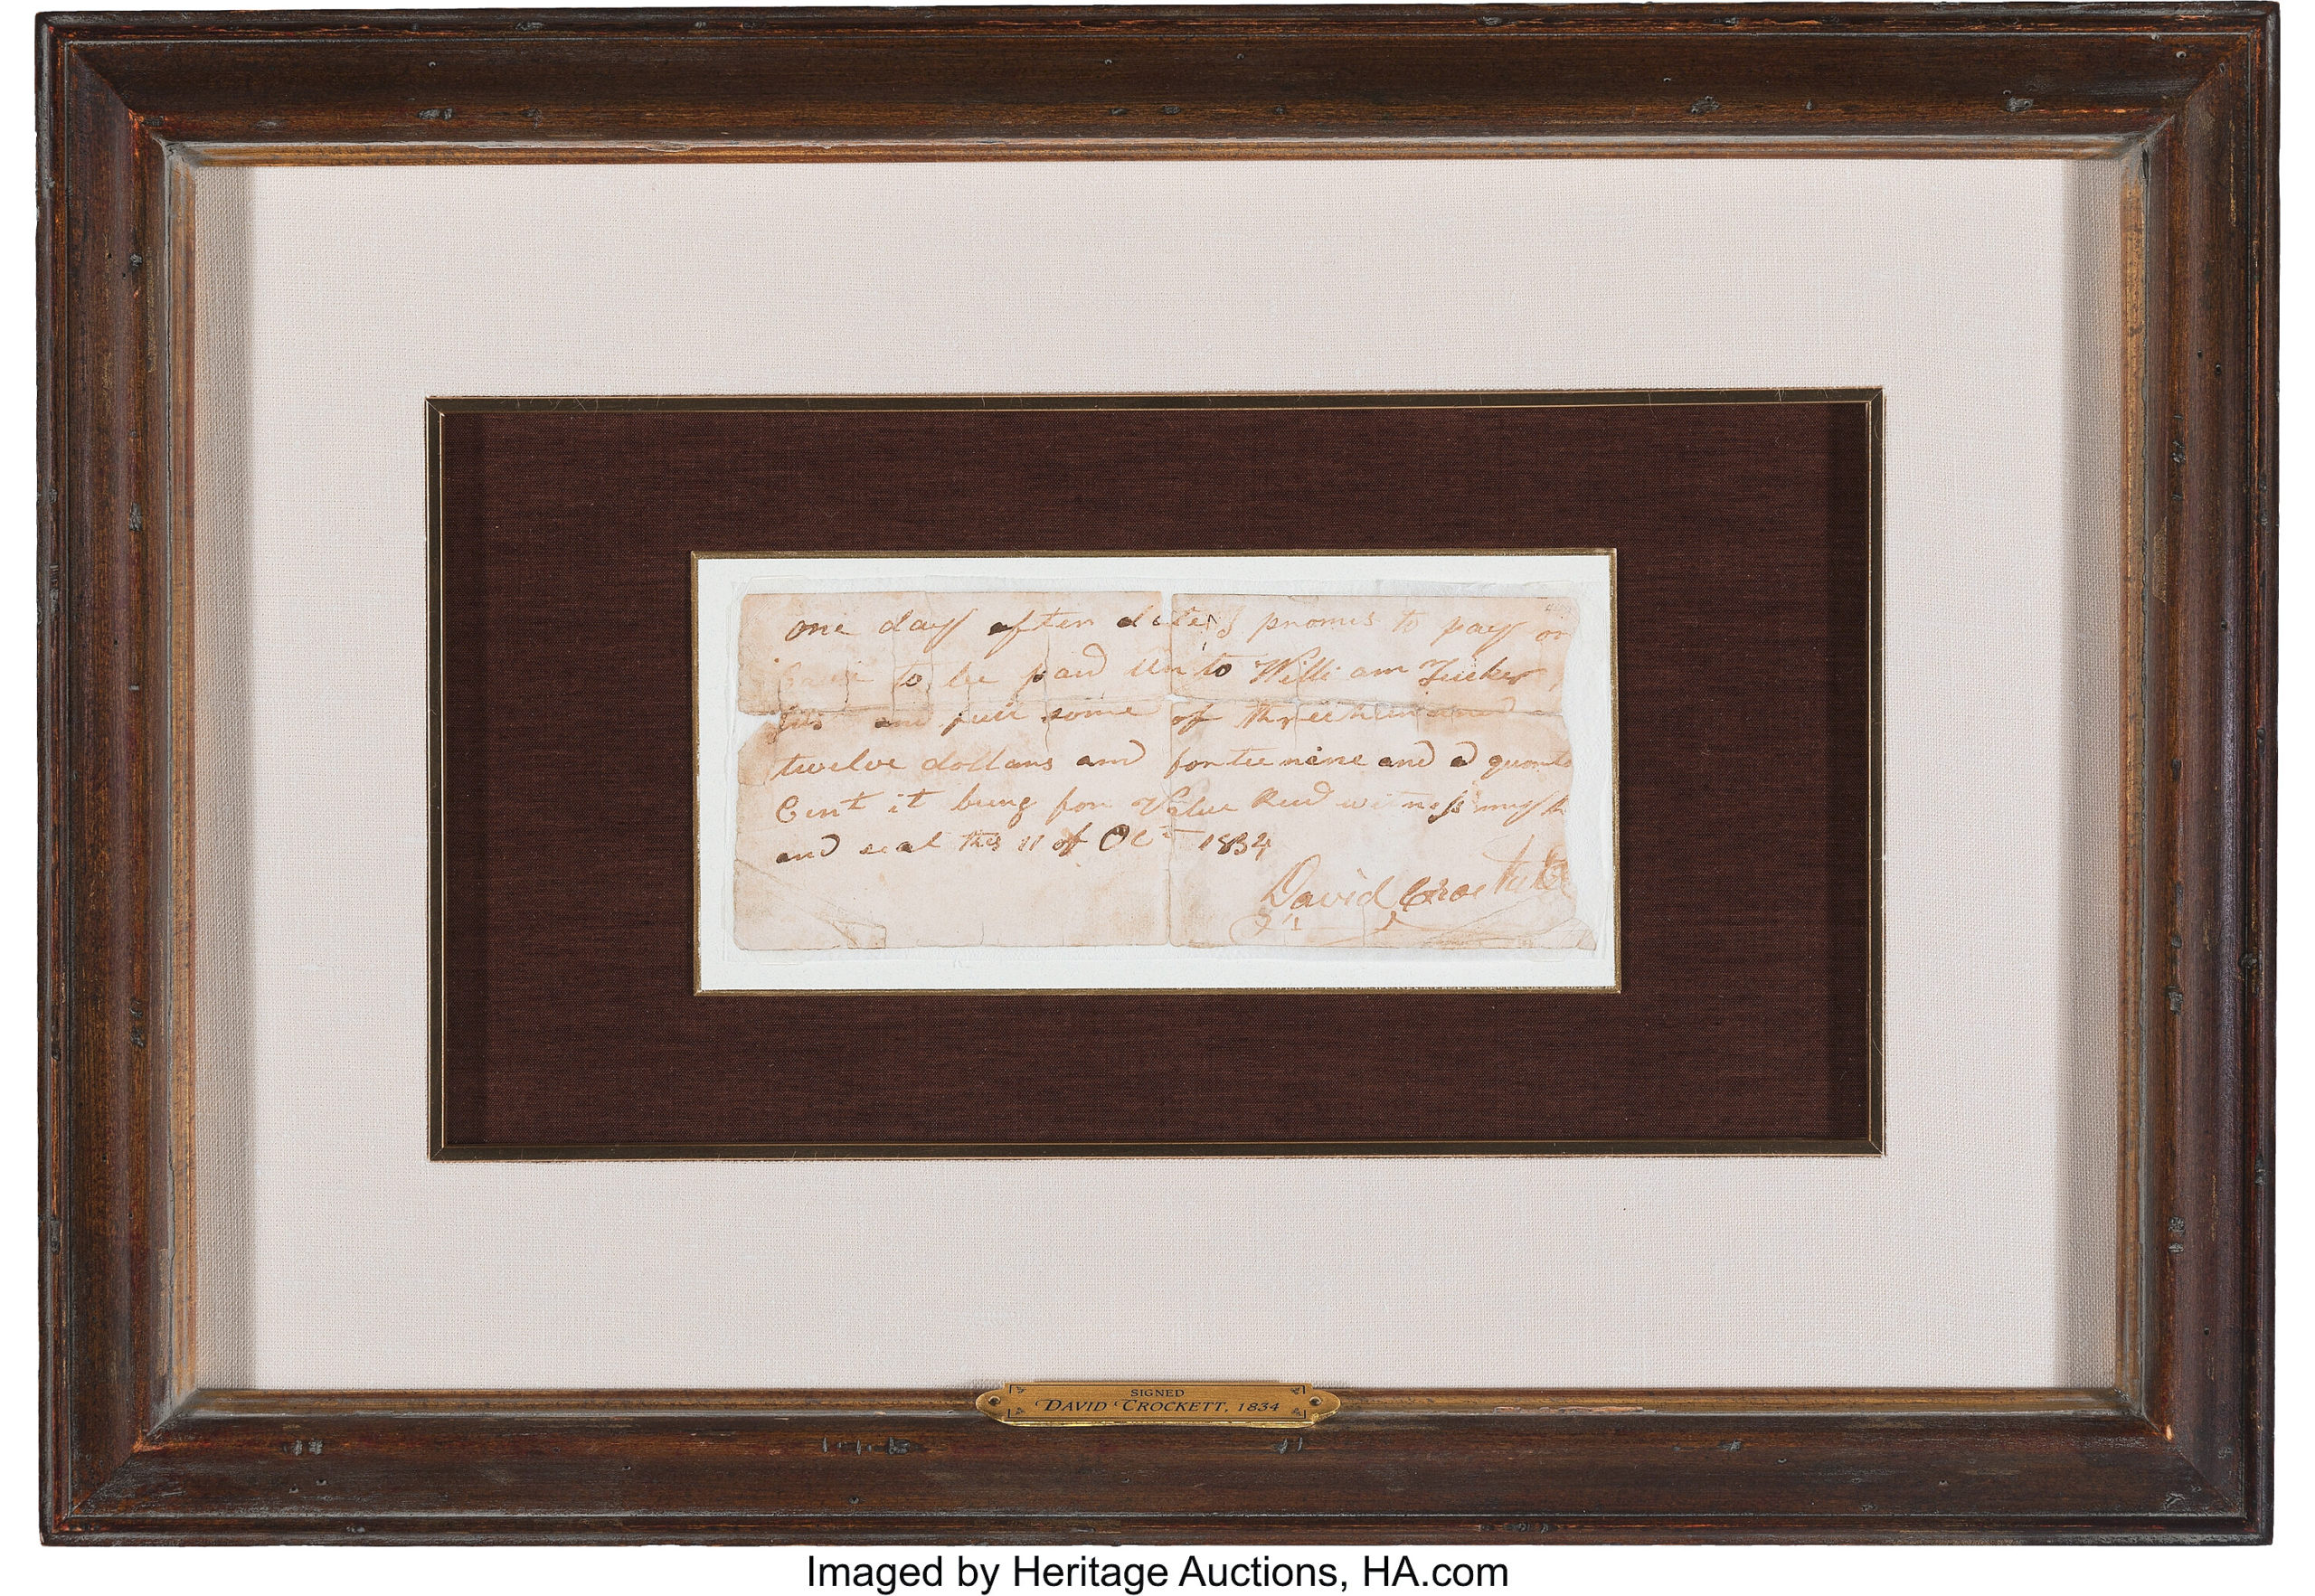 one day after date I promis to pay or
to be paid unto William Tucker,
and full some of three hundred
twelve dollars and fortee nine and a quarte
Cent it being for Value Recd witness my h
and seal this 11 of Oct 1834
David Crockett
SIGNED
DAVID CROCKETT, 1834
Imaged by Heritage Auctions, HA.com